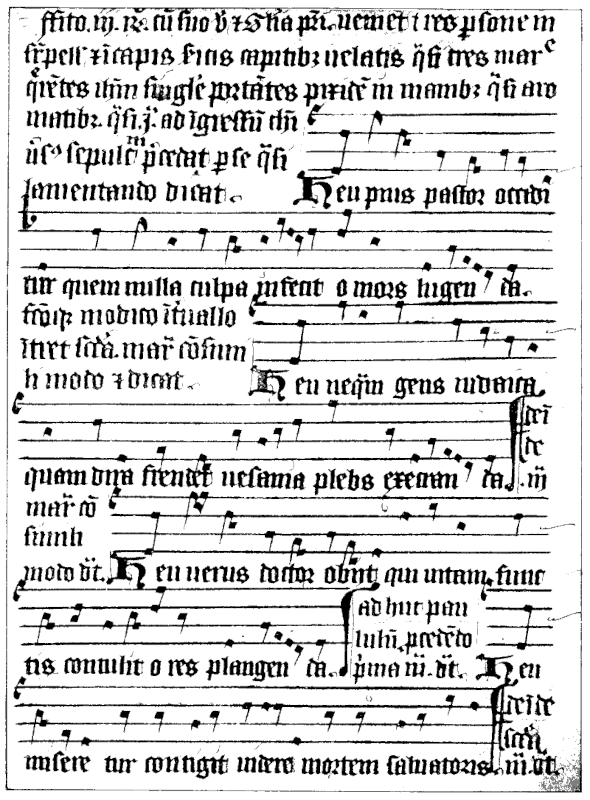 iij. R̄. cū suo v̄ ⁊ Gl'ia pr̄i. tres ꝑsone in
⁊ capis capitibꝫ uelatis q̄si tres mar
q̄rētes ihm singl'e portātes pixidē in manibꝫ q̄si aro
matibꝫ. q̄si. j. ad īgressū chi
sepulcm p̄cedat ꝑ se q̄si
lamentando dicat. Heu pius pastor occidi
tur quem nulla culpa infecit o mors lugen da.
modico īt'uallo
ītret scd̄a. mar̄ cōsim
li modo ⁊ dicat. Heu neq̄m gens iudaica
deī
de
quam dira frendet uesania plebs execran da. iij
mar̄ cō
simili
modo dt̄. Heu uerus doctor obiit qui uitam func
tis contulit o res plangen da.
ad huc pau
lulū. p̄cedēdo
p̄ma m̄. dt̄. Heu
misere cur contigit videre mortem saluatoris.
deīde
scd̄a
m̄. dt̄.